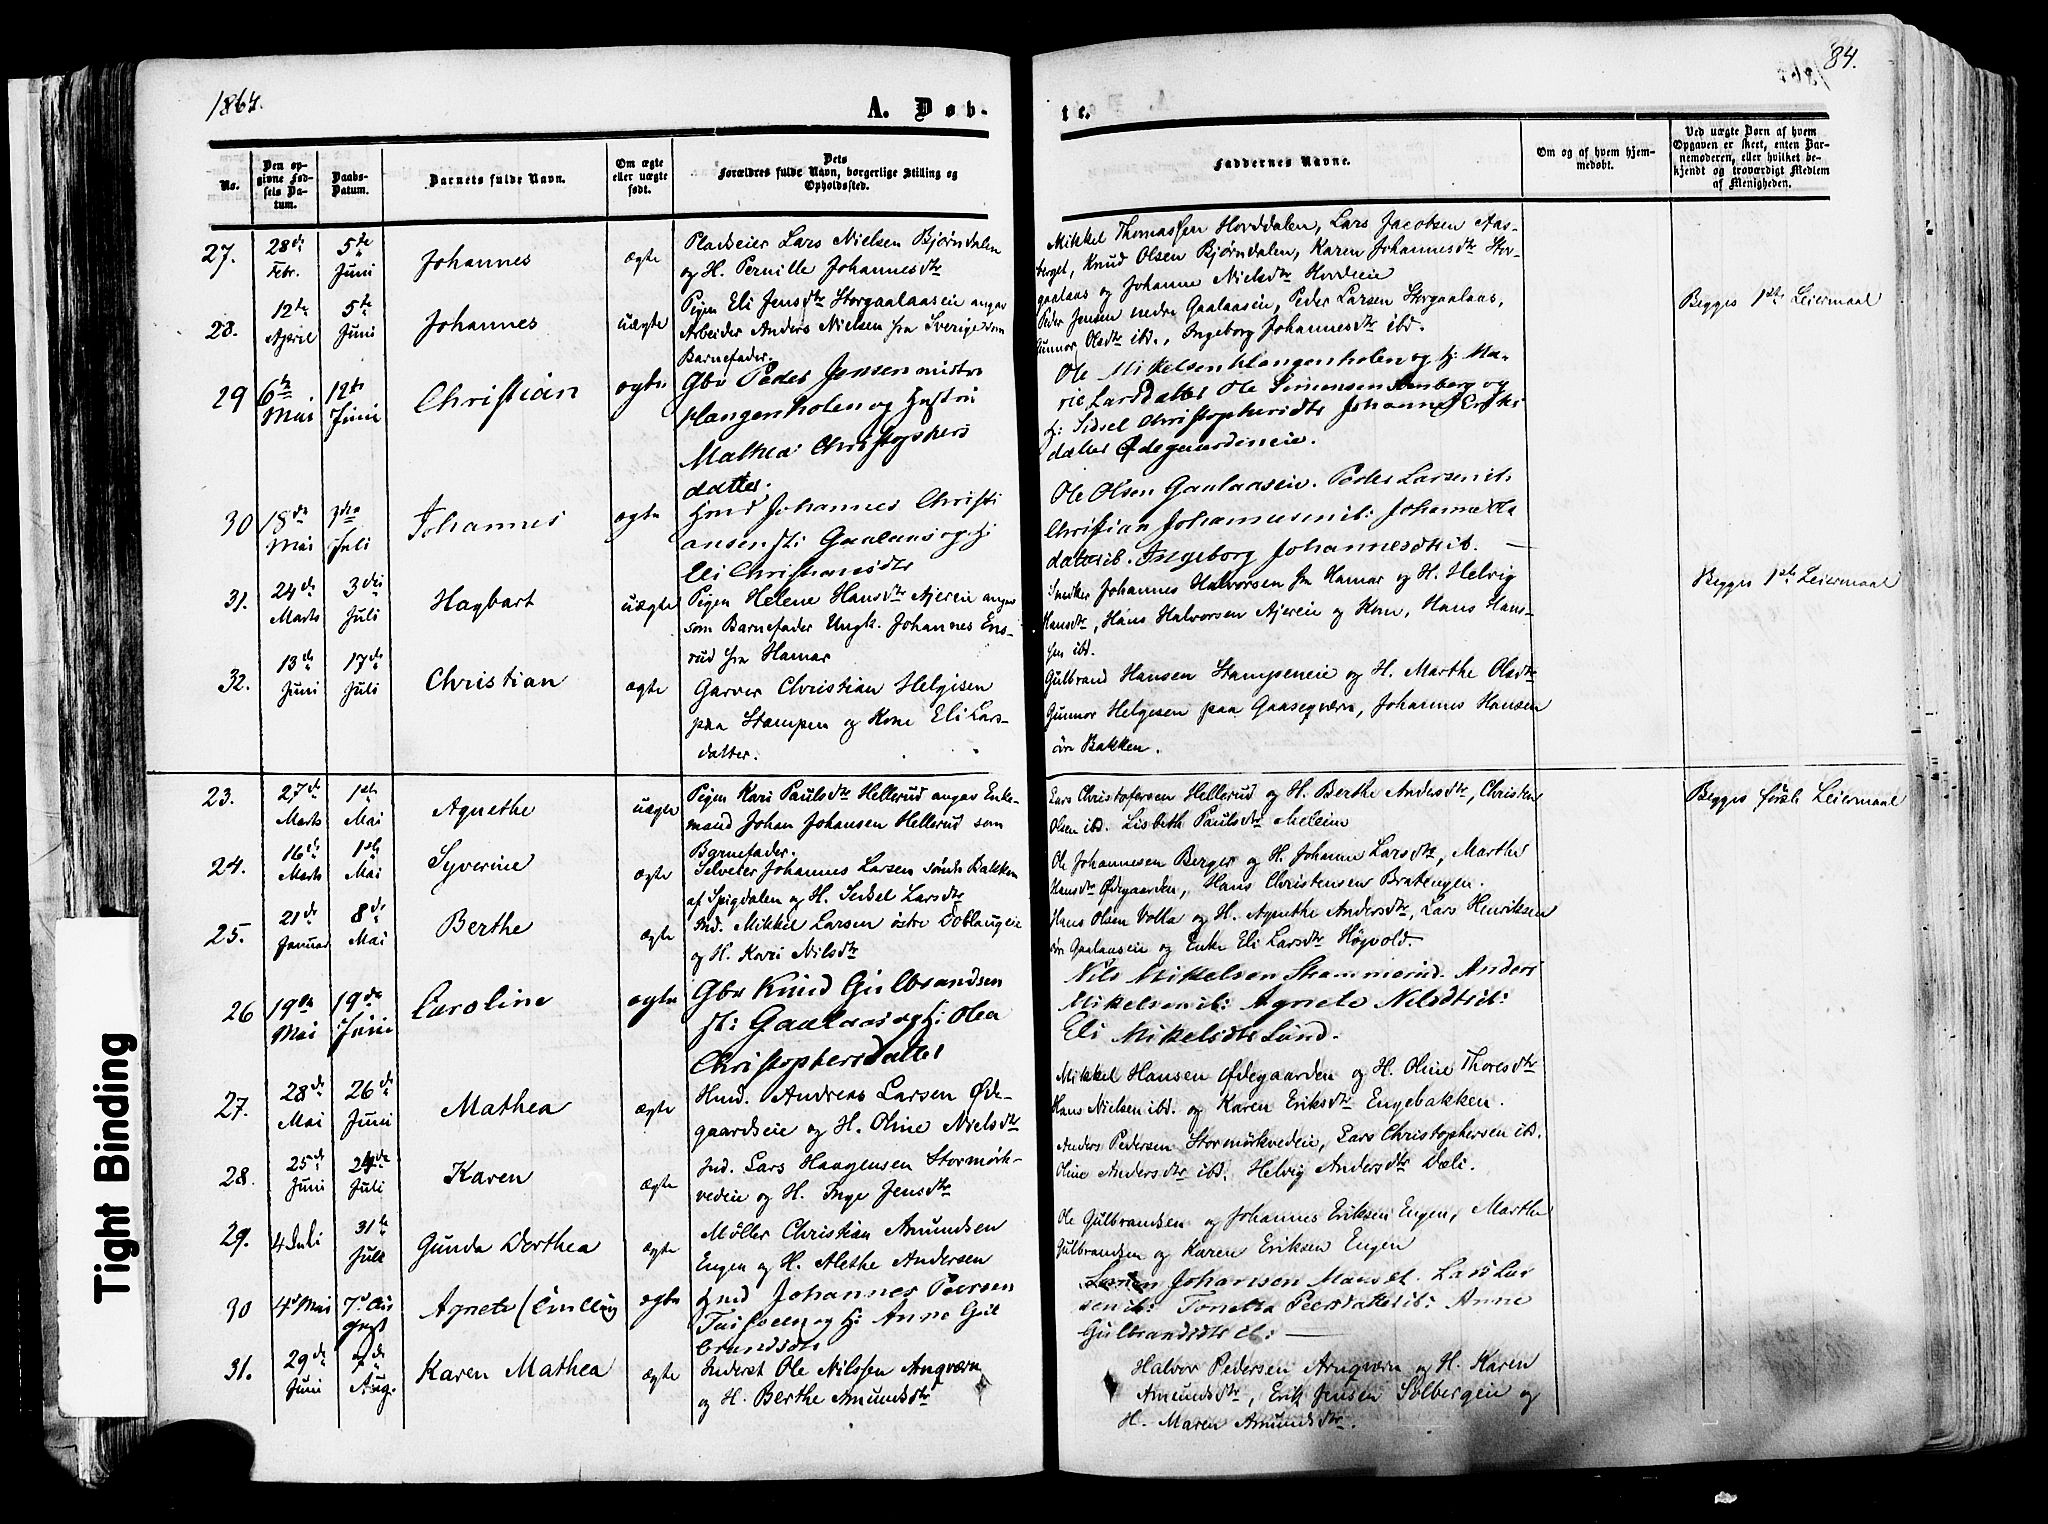 1864.
A. Døb-
te.
84.
No.
Den op-
givne Fød-
sels Da-
tum.
Daabs-
Datum.
Barnets fulde Navn.
Om ægte
eller uægte
født.
Dets
Forældres fulde Navn, borgerlige Stilling og
Opholdssted.
Faddernes Navne.
Om og af hvem hjem-
medøbt.
Ved uægte Børn af hvem
Opgaven er skeet, enten Bar-
nemoderen, eller hvilket be-
kjendt og troværdigt Medlem
af Menigheden.
27. 28de Febr. 5te Juni Johannes ægte
Pladseier Lars Nielsen Bjørndalen
og H. Pernille Johannesdtr
Mikkel Thomassen Horddalen, Lars Jacobsen Aas-
berget, Knud Olsen Bjørndalen, Karen Johannesdtr Stor-
gaalaas og Johanne Nielsdtr Hordeie
28. 12te April 5te Juni Johannes uægte
Pigen Eli Jensdtr Storgaalaaseie angav
Arbeider Anders Nielsen fra Sverige som
Barnefader.
Peder Jensen nedre Gaalaaseie, Peder Larsen Storgaalaas,
Gunnor Olsdtr ibd., Ingeborg Johannesdtr ibd.
Begges 1ste Leiermaal
29 6te Mai 12te Juni Christian ægte
Gbr Peder Jensen midtre
Klangenholen og Hustru
Mathea Christophers
datter.
Ole Mikelsen Klangenholen og H: Ma-
rie Larsdatter Ole Simensen Arnberg og
H: Sidsel Christophersdtr Johanne Eriks
datter Ødegaardineie.
30 18de Mai 3die Juli Johannes ægte
Hmd Johannes Christi
ansen St: Gaalaas og H:
Eli Christiansdtr
Ole Olsen Gaalaaseie. Peder Larsen ib.
Christian Johannesen ib: Johanne Ola
datter ib. Ingeborg Johannesdtr ib.
31. 24de Marts 3die Juli Hagbart uægte
Pigen Helene Hansdtr Ajereie angav
som Barnefader Ungk. Johannes Ens-
rud fra Hamar
Snedker Johannes Halvorsen fra Hamar og H. Helvig
Hansdtr, Hans Halvorsen Ajereie og Kone, Hans Han-
sen ibd.
Begges 1ste Leiermaal
32. 13de Juni 17de Juli Christian ægte
Garver Christian Helgesen
paa Stampen og Kone Eli Lars-
datter.
Gulbrand Hansen Stampeneie og H. Marthe Olsdtr
Gunnor Helgesen paa Gaasegværn, Johannes Hansen
øvre Bakken.
23. 27de Marts 1ste Mai Agnethe uægte
Pigen Kari Paulsdtr Hellerud angav Enke-
mand Johan Johansen Hellerud som
Barnefader.
Lars Christofersen Hellerud og H. Berthe Andersdtr, Christen
Olsen ibd. Lisbeth Paulsdtr Meleim
Begges første Leiermaal
24. 16de Marts 1ste Mai Syverine ægte
Selveier Johannes Larsen søndr Bakken
af Spigdalen og H. Sidsel Larsdtr
Ole Johannesen Berger og H. Johanne Larsdtr, Marthe
Hansdtr Ødegaarden, Hans Christensen Bratengen.
25. 21de Januar 8de Mai Berthe ægte
Ind. Mikkel Larsen østre Doblaugeie
og H. Kari Nilsdtr
Hans Olsen Volla og H. Agnethe Andersdtr, Lars Henriksen
øvre Gaalaaseie og Enke Eli Larsdtr Høgvold.
26 19de Mai 19de Juni Caroline ægte
Gbr Knud Gulbrandsen
St: Gaalaas og H: Olea
Christophersdatter
Nils Mikelsen Strammerud. Anders
Mikelsen ib: Agnete Nilsdtr ib:
Eli Mikelsdtr Lund.
27. 28de Mai 26de Juni Mathea ægte
Hmd. Andreas Larsen Øde-
gaardseie og H. Oline Nielsdtr
Mikkel Hansen Ødegaarden og H. Oline Thoresdtr
Hans Nielsen ibd. og Karen Eriksdtr Engebakken.
28. 25de Juni 24de Juli Karen ægte
Ind. Lars Haagensen Stormørk-
vedeie og H. Inge Jensdtr
Anders Pedersen Stormørkvedeie, Lars Christophersen ibd.
Oline Andersdtr ibd. Helvig Andersdtr Dæli.
29. 4 Juli 31te Juli Gunda Dorthea ægte
Møller Christian Amundsen
Engen og H. Alethe Andersen
Ole Gulbrandsen og Johannes Eriksen Engen, Marthe
Gulbrandsen og Karen Eriksen Engen
30 4de Mai 7de August Agnete ægte
Hmd Johannes Peersen
og H: Anne Gul
brandsdtr
Johansen Manset. Lars Lar
sen ib: Tonetta Peersdatter ib: Anne
Gulbrandsdtr ib:
31. 29de Juni 7de Aug. Karen Mathea ægte
Inderst Ole Nilssen Angværn
og H. Berthe Amundsdtr
Halvor Pedersen Arngværn og H. Karen
Amundsdtr, Erik Jensen Solbergeie og
H. Maren Amundsdtr.
Tight Binding